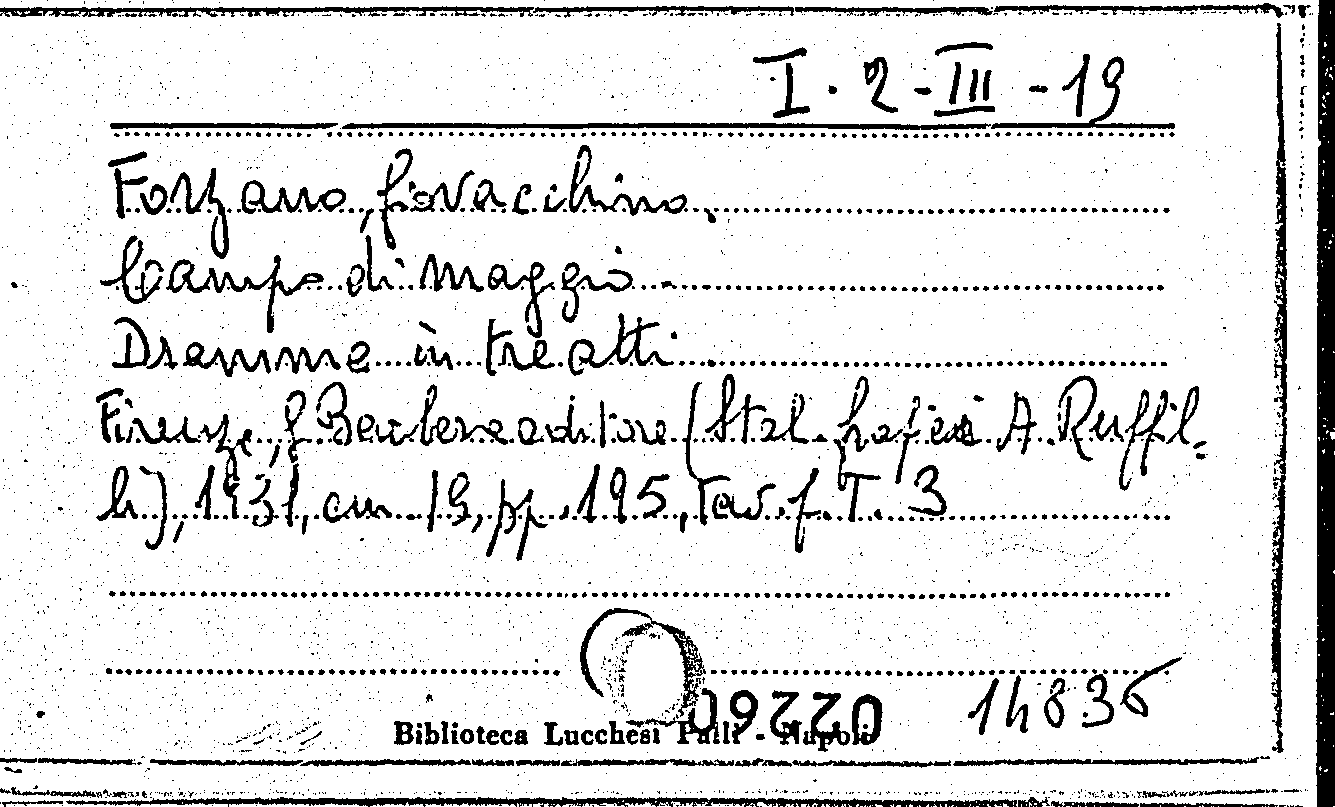 I. 2 - III - 19
Forzano, Giovacchino.
Campo di Maggio.
Dramma in tre atti.
Firenze, G. Barbera editore (Stab. grafici A. Ruffil=
li), 1931, cm. 19, pp. 195, tav. f. T. 3
14836
02260
Biblioteca Lucchesi Palli - Napoli